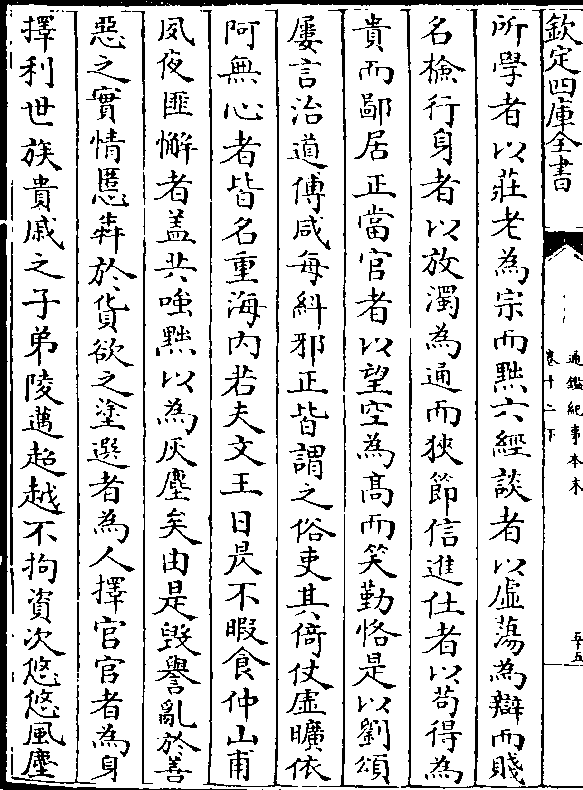 欽定四庫全書
通鑑紀事本末
卷十二下
五十五
所學者以莊老為宗而黜六經談者以虛蕩為辯而賤
名檢行身者以放濁為通而狹節信進仕者以茍得為
貴而鄙居正當官者以望空為高而笑勤恪是以劉頌
屢言治道傅咸每糾邪正皆謂之俗吏其倚仗虛曠依
阿無心者皆名重海内若夫文王日昃不暇食仲山甫
夙夜匪懈者盖共嗤黜以為灰塵矣由是毀譽亂於善
惡之實情慝犇於貨欲之塗選者為人擇官官者為身
擇利世族貴戚之子弟陵邁超越不拘資次悠悠風塵